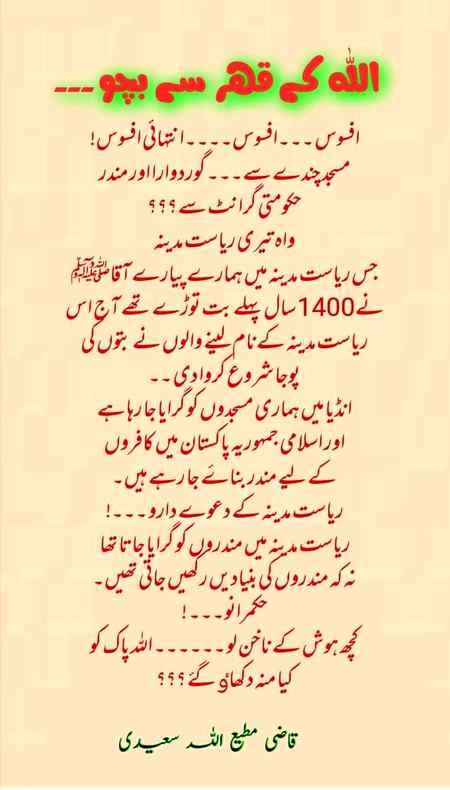 اللہ کے قھر سے بچو ---
افسوس ---افسوس----انتہائی افسوس!
مسجد چندے سے --- گوردوارا اور مندر
حکومتی گرانٹ سے ؟؟؟
واہ تیری ریاست مدینہ
جس ریاست مدینہ میں ہمارے پیارے آقا ﷺ
نے 1400 سال پہلے بت توڑے تھے آج اس
ریاست مدینہ کے نام لینے والوں نے بتوں کی
پوجا شروع کروا دی --
انڈیا میں ہماری مسجدوں کو گرایا جا رہا ہے
اور اسلامی جمہوریہ پاکستان میں کافروں
کے لیے مندر بنائے جا رہے ہیں۔
ریاست مدینہ کے دعوے دارو ---!
ریاست مدینہ میں مندروں کو گرایا جاتا تھا
نہ کہ مندروں کی بنیادیں رکھیں جاتی تھیں۔
حکمرانو---!
کچھ ہوش کے ناخن لو------اللہ پاک کو
کیا منہ دکھاؤ گئے ؟؟؟
قاضی مطیع اللہ سعیدی